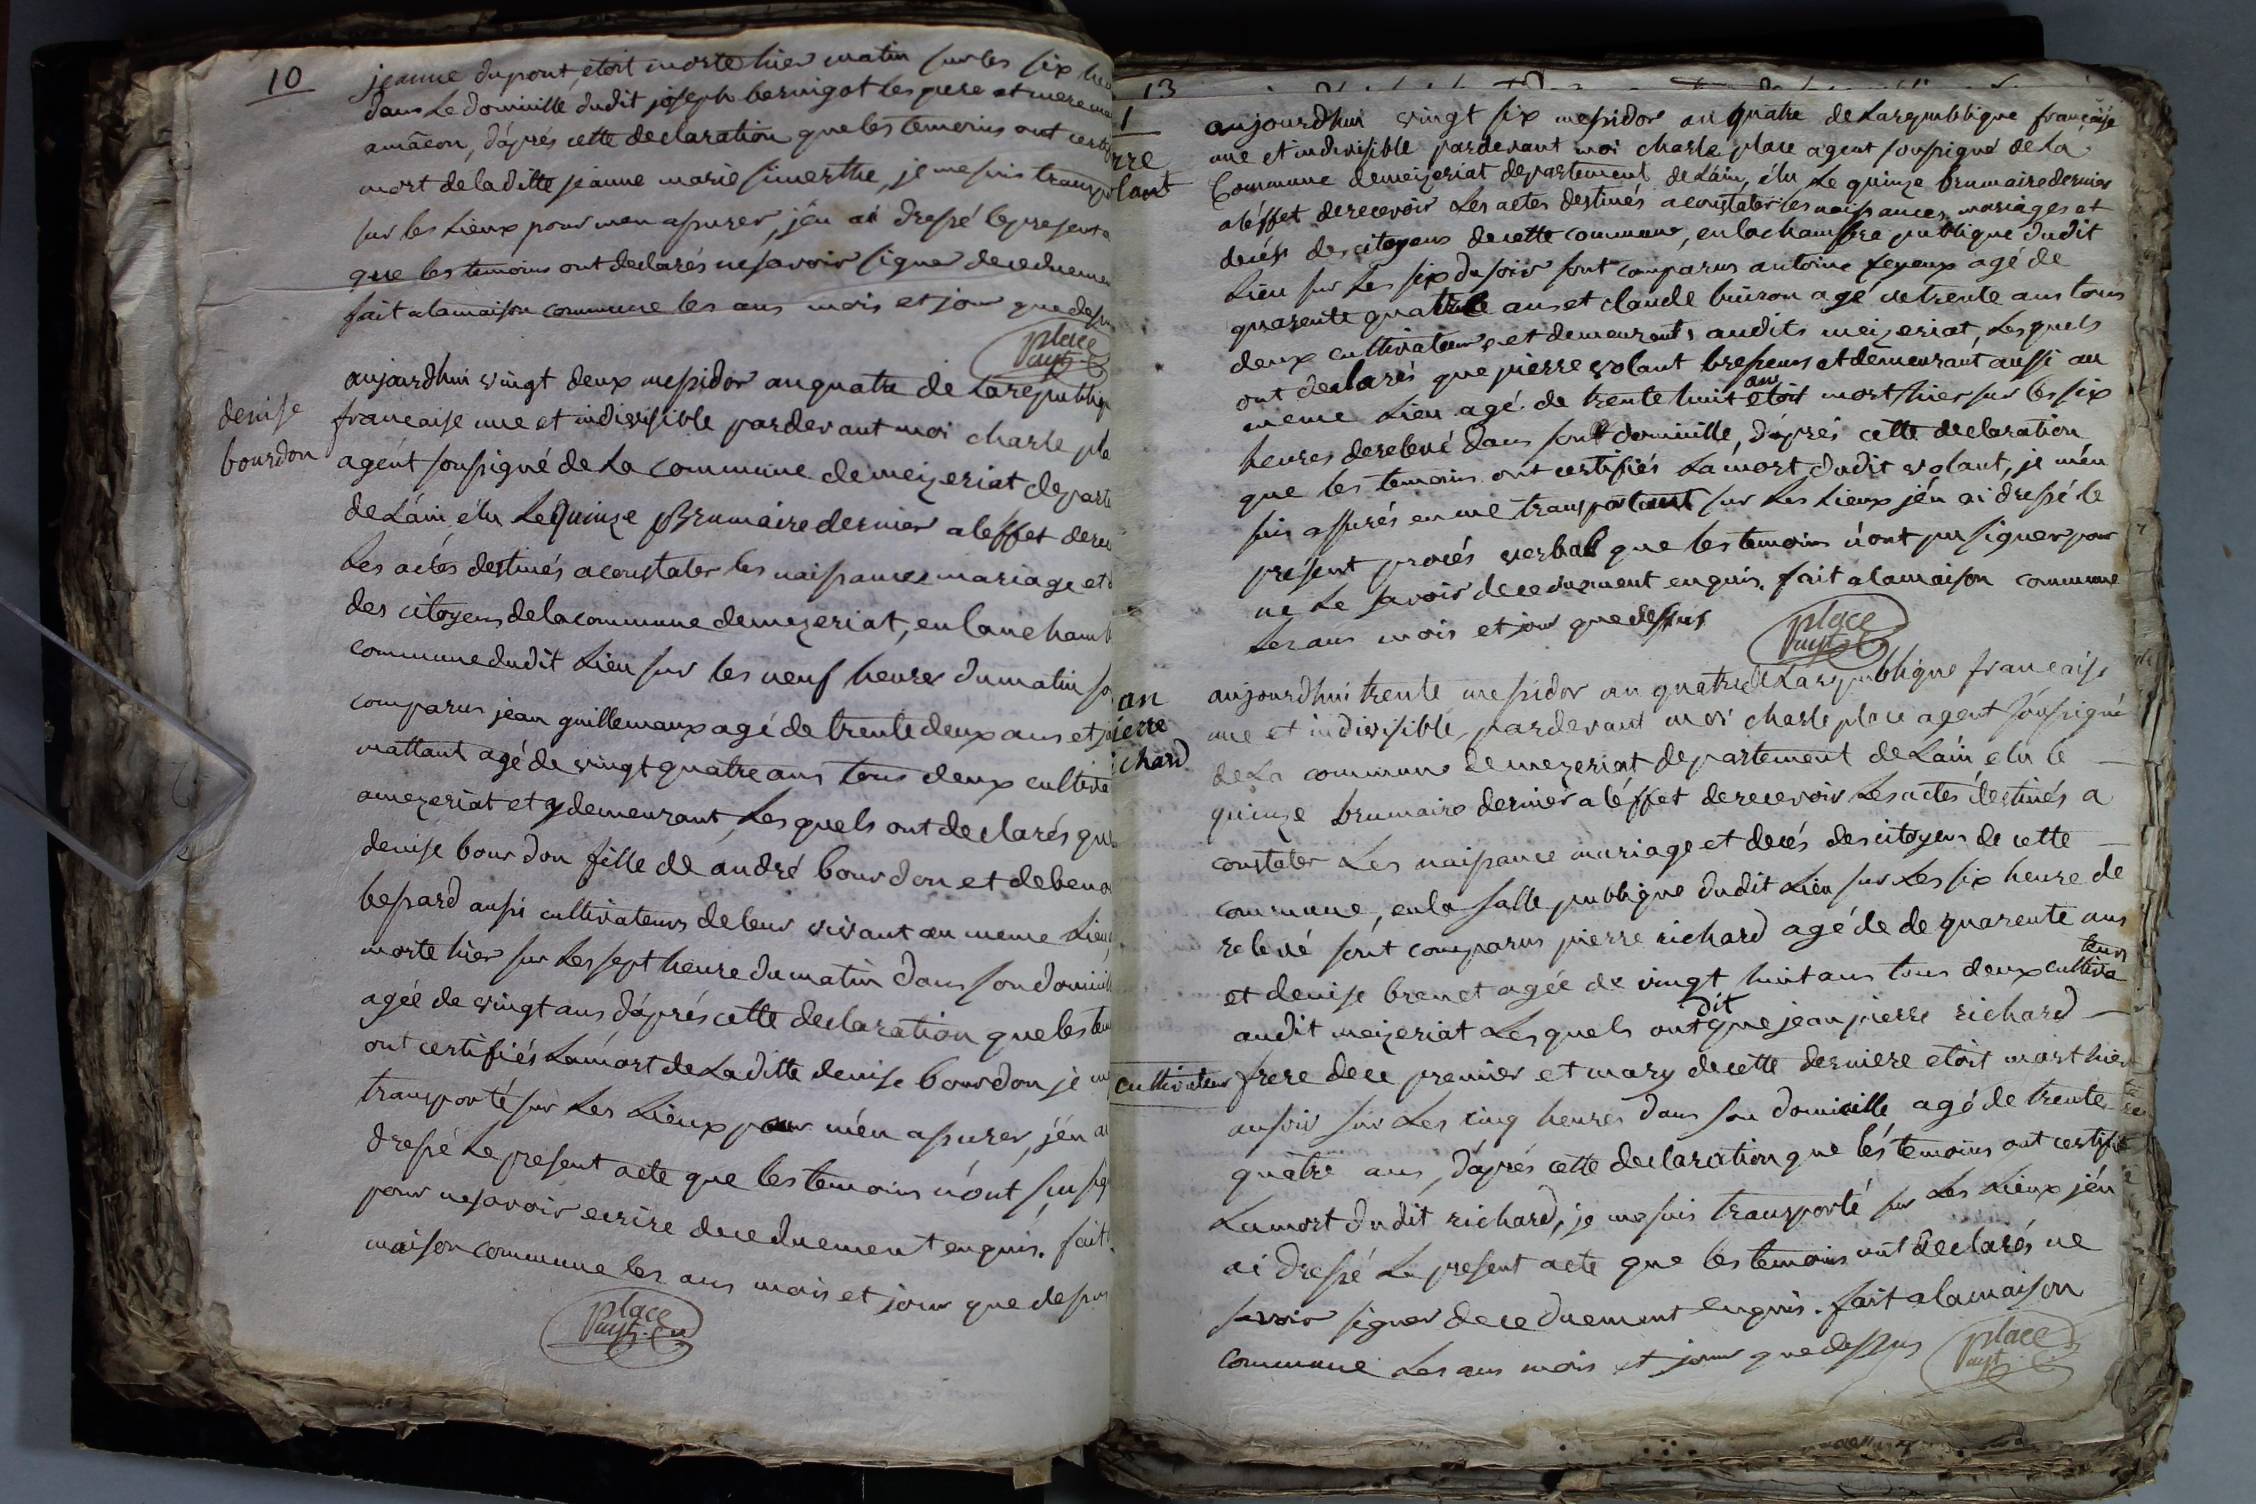 10
jeanne dupont, etoit morte hier matin sur les six heu
dans le domicille dudit joseph bernigot les pere et mere
amâcon, dáprés cette declaration que les temoins ont certif
mort de laditte jeanne marie simerthe, je me suis transpo
sur les Lieux pour men assurer, jén ai dressé le present a
que les temoins ont declarés ne savoir signer de ce duemen
fait a la maison commune les ans mois et jour que dessu
place
agt
denise
bourdon
aujourdhui vingt deux messidor an quatre de La republiq
francaise une et indivisible pardevant moi charle pla
agent soussigné de La commune de meizeriat departe
de Láin, élu Le Quinze Brumaire dernier a léffet de rece
Les actes destinés a constater les naissances mariage et d
des citoyens de la commune de mezeriat, en la ne chamb
commune dudit Lieu sur les neuf heures du matin so
comparus jean guillemaux agé de trente deux ans et j
mattant agé de vingt quatre ans tous deux cultiva
a mezeriat et y demeurant, Les quels ont declarés que
denise bourdon fille de andré bourdon et de beno
bessard aussi cultivateurs de leur vivant au meme Lieu,
morte hier sur Les sept heure du matin dans son domicil
agée de vingt ans dáprés cette declaration que les tem
ont certifiés La mort de La ditte denise bourdon je me
transporté sur Les Lieux pour mén assurer, jén ai
dressé Le present acte que les temoins nónt su sig
pour ne savoir ecrire de ce duement enquis. fait
maison commune les ans mois et jour que dessus
place
agt
13
1
rre
olant
aujourdhui vingt six messidor an quatre de La republique francaise
une et indivisible pardevant moi charle place agent soussigné de La
Commune de meizeriat departement de Láin, élu Le quinze brumaire dernier
a léffet de recevoir Les actes destinés a constater les naissances mariages et
decés des citoyens de cette commune, en la chambre publique dudit
Lieu sur Les six du soir sont comparus antoine feyeux agé de
quarente quatre ans et claude buiron agé de trente ans tous
deux cultivateurs et demeurants audits meizeriat, Les quels
ont declarés que pierre volant bressens et demeurant aussi au
meme Lieu agé de trente huit ans etoit mort hier sur les six
heures de relevé dans son domicille, dáprés cette declaration
que les temoins ont certifiés La mort dudit volant, je mén
suis assurés en me transportant sur Les Lieux jén ai dressé le
present procés verbal que les temoins nónt pu signer pour
ne Le savoir de ce duement enquis. fait a la maison commune
Les ans mois et jour que dessus
place
agt
an
ierre
chard
aujourdhui trente messidor an quatre de La republique francaise
une et indivisible, pardevant moi charle place agent soussigné
de La commune de mezeriat departement de Láin elu le
quinze brumaire dernier a léffet de recevoir Les actes destinés a
constater Les naissance mariage et decés des citoyens de cette
commune, en la salle publique dudit Lieu sur Les six heure de
relevé sont comparus pierre richard agé de de quarente ans
et denise brenet agée de vingt huit ans tous deux cultivateurs
audit meizeriat Les quels ont dit que jean pierre richard
cultivateur frere de ce premier et mary de cette derniere etoit mort hier
au soir sur Les cinq heures dans son domicille agé de trente
quatre ans, dáprés cette declaration que les temoins ont certifié
La mort dudit richard, je me suis transporté sur Les Lieux jén
ai dressé Le present acte que les temoins ont declarés ne
savoir signer de ce duement enquis. fait a la maison
commune Les ans mois et jour que dessus
place
agt